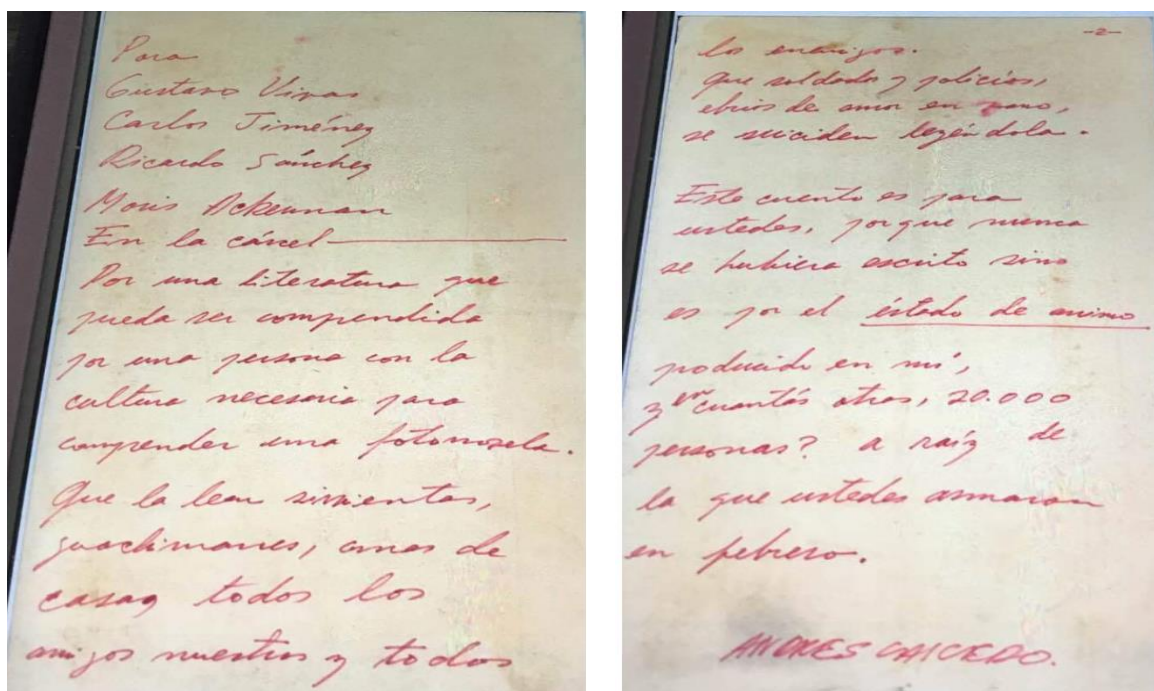 Para
Gustavo Vivas
Carlos Jiménez
Ricardo Sánchez
Moris Ackerman
En la cárcel
Por una literatura que
pueda ser comprendida
por una persona con la
cultura necesaria para
comprender una fotonovela.
Que la lean sirvientas,
guachimanes, amas de
casa y todos los
amigos nuestros y todos
-2-
los enemigos.
Que soldados y policías,
ebrios de amor en vano,
se suiciden leyéndola.
Este cuento es para
ustedes, porque nunca
se hubiera escrito sino
es por el éstado de animo
producido en mí,
y en cuantás otras, 20.000
personas? a raíz de
la que ustedes armaron
en febrero.
ANDRES CAICEDO.